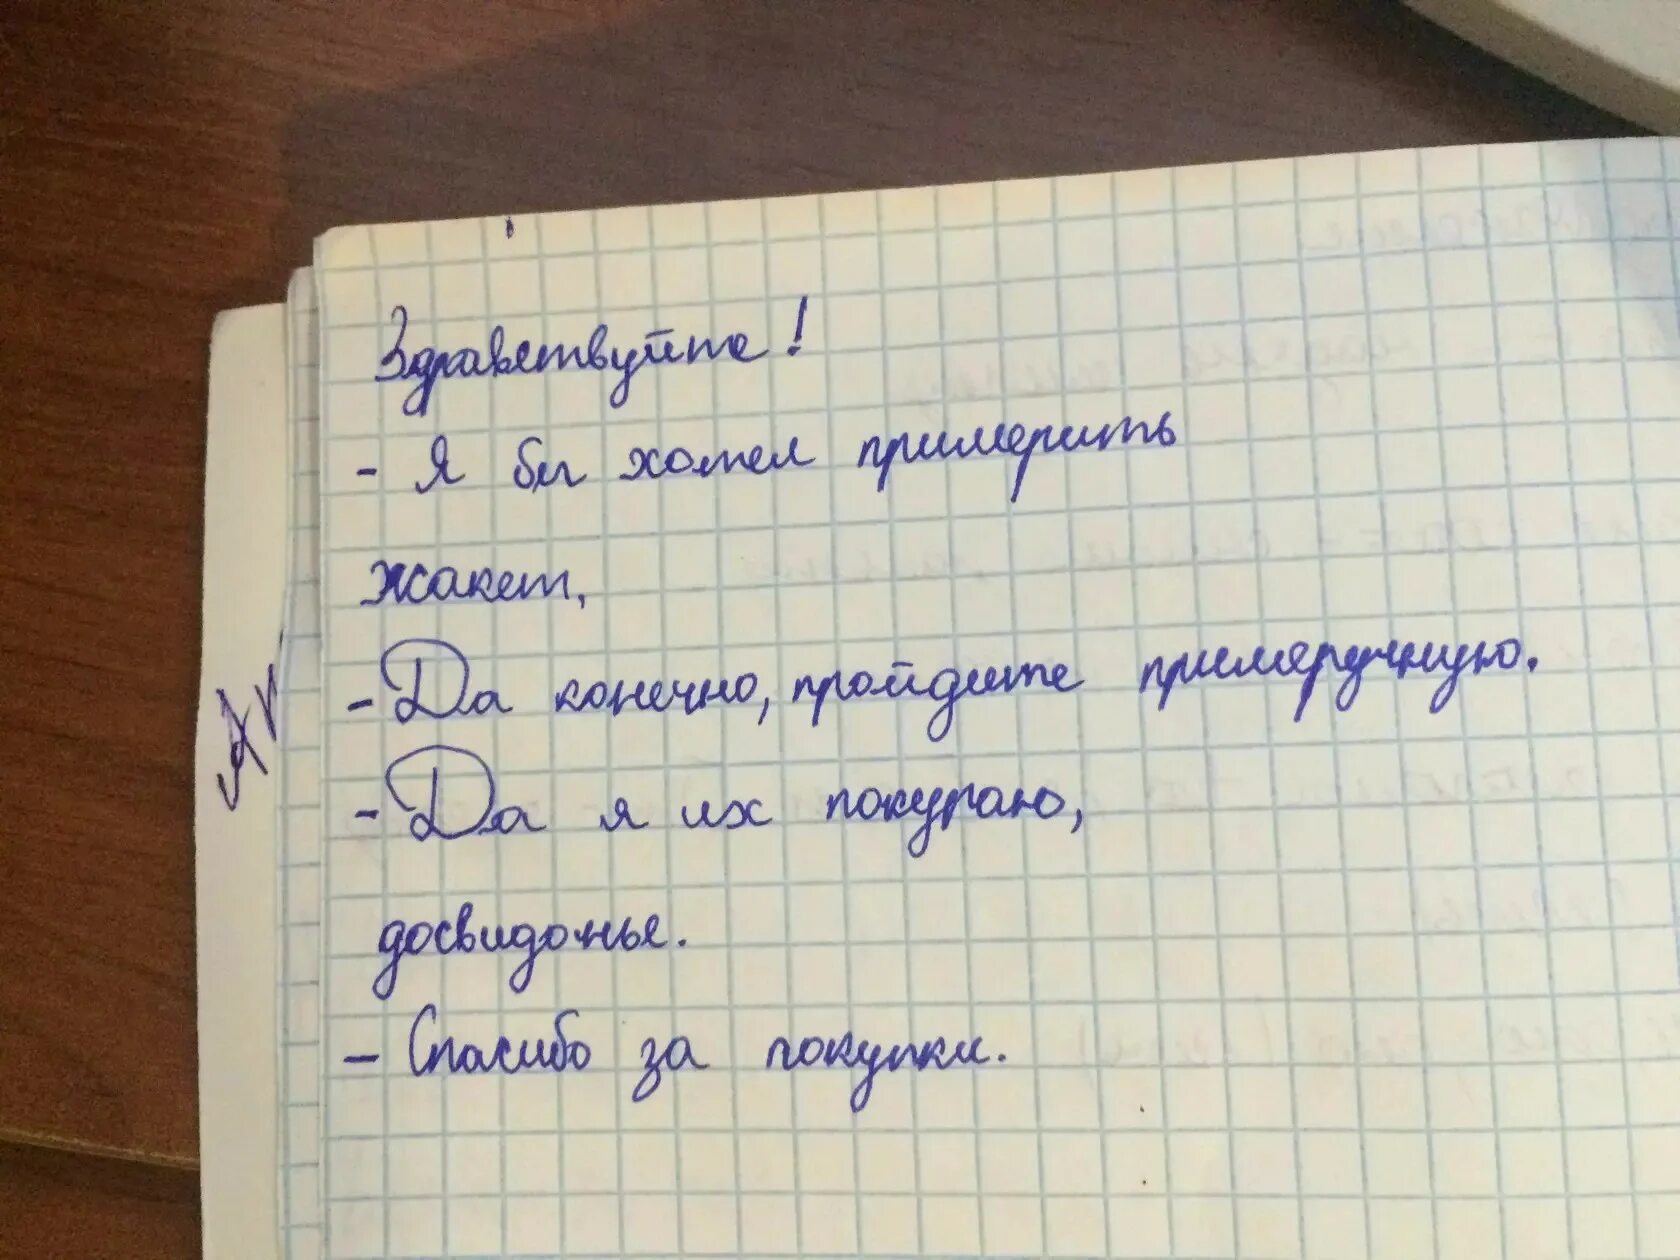 Здравствуйте!
- Я бы хотел примерить
жакет,
- Да конечно, пройдите примеручную.
- Да я их покупаю,
досвидонье.
- Спасибо за покупки.